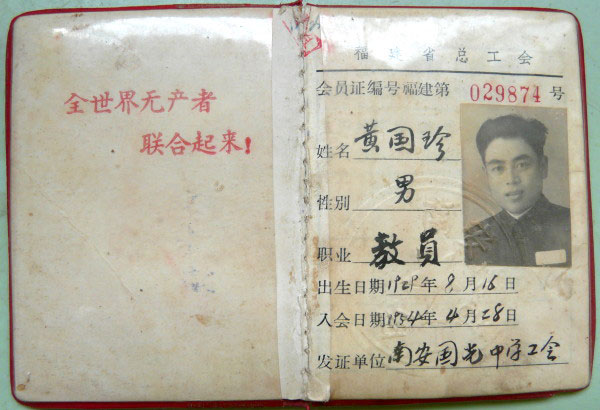 全世界无产者
联合起来!
福建省总工会
会员证编号福建第 029874 号
姓名 黄国珍
性别 男
职业 教员
出生日期1929年9月16日
入会日期1954年4月28日
发证单位 南安国光中学工会